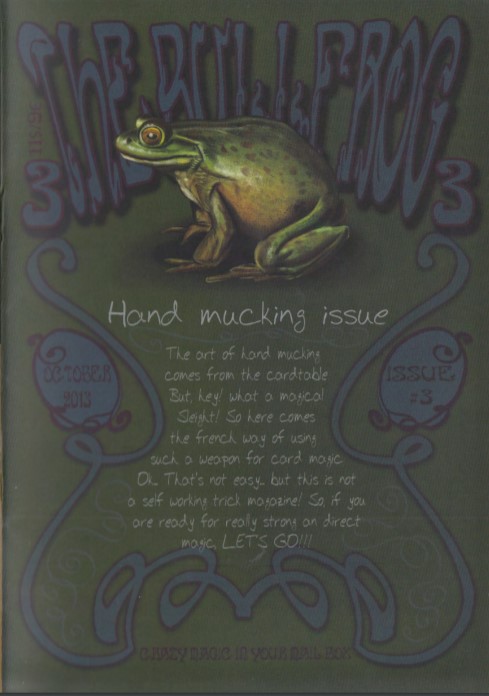 THE BULLFROG
ISSUE
3
3
Hand mucking issue
OCTOBER
2013
ISSUE
#3
The art of hand mucking
comes from the cardtable
But, hey! what a magical
Sleight! So here comes
the french way of using
such a weapon for card magic
Ok.. That's not easy.. but this is not
a self working trick magazine! So, if you
are ready for really strong an direct
magic, LET'S GO!!!
CRAZY MAGIC IN YOUR MAIL BOX